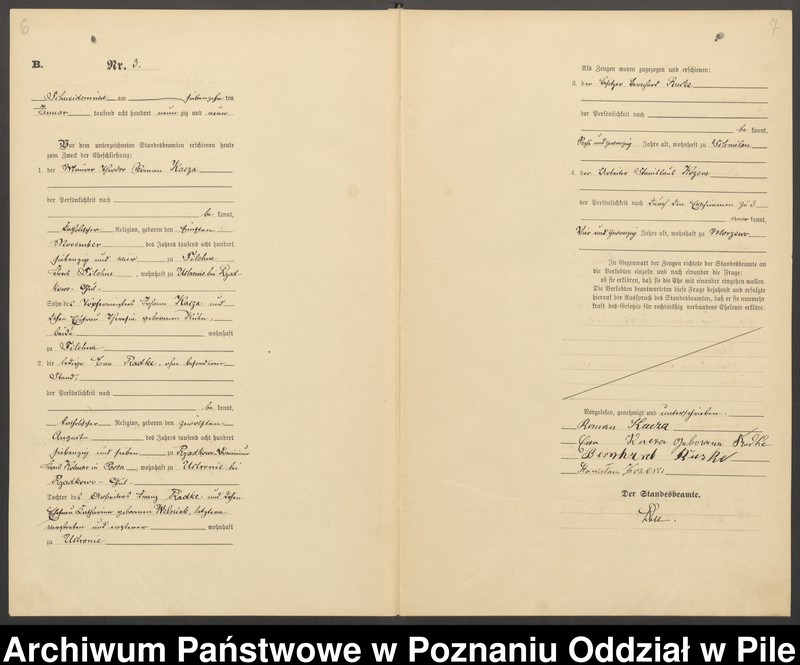 6
B.
Nr. 3.
Schneidemühl am siebenzehnten
Januar tausend acht hundert neunzig und neun
Vor dem unterzeichneten Standesbeamten erschienen heute
zum Zweck der Eheschließung:
1. der Maurer Theodor Roman Kacza
der Persönlichkeit nach
be kannt,
katholischer Religion, geboren den
November des Jahres tausend acht hundert
siebenzig und vier zu Filehne
Kreis Filehne, wohnhaft zu Ustronie bei Rzad-
kowo Gut.
Sohn des Johann Kacza und
dessen Ehefrau geborenen
beide wohnhaft
zu Filehne
2. die ledige Eva Radtke, ohne besonderen
Stand,
der Persönlichkeit nach
be kannt,
katholischer Religion, geboren den zwölften
August des Jahres tausend acht hundert
siebenzig und sieben zu Rzadkowo
Kreis Kolmar in Posen, wohnhaft zu Ustronie bei
Rzadkowo-Gut.
Tochter des Arbeiters Franz Radtke und dessen
Ehefrau Katharina geborenen letztere
verstorben und ersterer wohnhaft
zu Ustronie
7
Als Zeugen waren zugezogen und erschienen:
3. der Besitzer Bernhard
der Persönlichkeit nach
be kannt,
Jahre alt, wohnhaft zu
4. der Arbeiter Stanislaus
der Persönlichkeit nach durch den Erschienenen zu 3
kannt,
vier und zwanzig Jahre alt, wohnhaft zu
In Gegenwart der Zeugen richtete der Standesbeamte an
die Verlobten einzeln und nach einander die Frage:
ob sie erklären, daß sie die Ehe mit einander eingehen wollen.
Die Verlobten beantworteten diese Frage bejahend und erfolgte
hierauf der Ausspruch des Standesbeamten, daß er sie nunmehr
kraft des Gesetzes für rechtmäßig verbundene Eheleute erkläre.
Vorgelesen, genehmigt und unterschrieben:
Roman Kacza
Ewa Kacza geborene Radke
Bernhard
Stanisław
Der Standesbeamte.
Archiwum Państwowe w Poznaniu Oddział w Pile